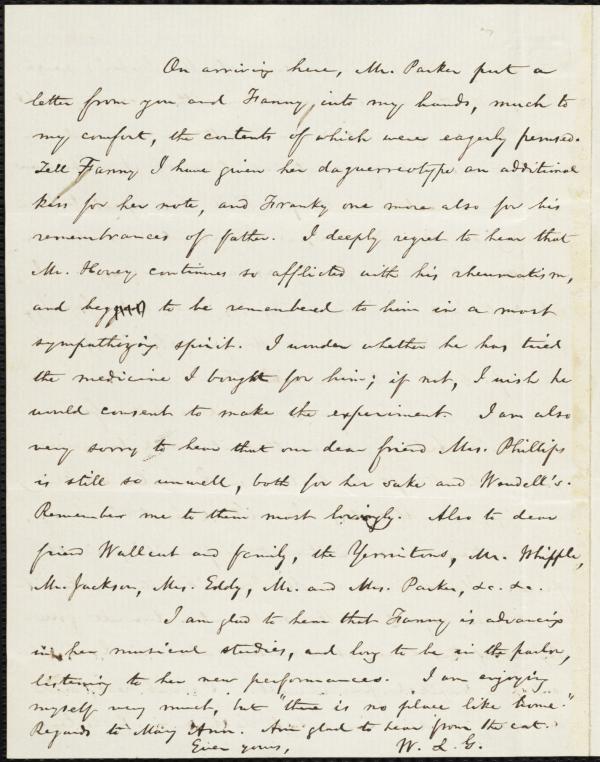 On arriving here, Mr. Parker put a
letter from you and Fanny, into my hands, much to
my comfort, the contents of which were eagerly perused.
Tell Fanny I have given her daguerreotype an additional
kiss for her note, and Franky one more also for his
remembrances of father. I deeply regret to hear that
Mr. Hovey continues so afflicted with his rheumatism,
and beg to be remembered to him in a most
sympathizing spirit. I wonder whether he has tried
the medicine I bought for him; if not, I wish he
would consent to make the experiment. I am also
very sorry to hear that our dear friend Mrs. Phillips
is still so unwell, both for her sake and Wendell's.
Remember me to them most lovingly. Also to dear
friend Wallcut and family, the Yerrintons, Mr. Whipple,
Mr. Jackson, Mrs. Eddy, Mr. and Mrs. Parker, &c. &c.
I am glad to hear that Fanny is advancing
in her musical studies, and long to be in the parlor,
listening to her new performances. I am enjoying
myself very much, but "there is no place like home."
Regards to Mary Ann. Am glad to hear from the cat.
Ever yours, W. L. G.